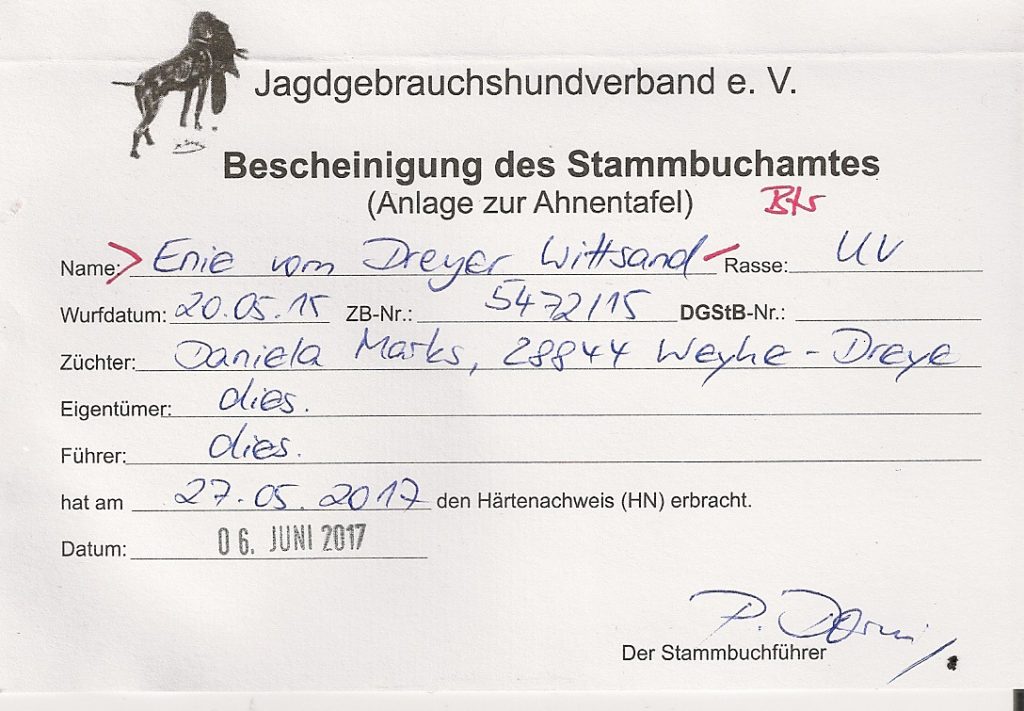 Jagdgebrauchshundverband e. V.
Bescheinigung des Stammbuchamtes
(Anlage zur Ahnentafel)
Name: Enie vom Dreyer Wittsand Rasse: UV
Wurfdatum: 20.05.15 ZB-Nr.: 5472/15 DGStB-Nr.:
Züchter: Daniela Marks, 28844 Weyhe - Dreye
Eigentümer: dies.
Führer: dies.
hat am 27.05.2017 den Härtenachweis (HN) erbracht.
Datum: 06. JUNI 2017
Der Stammbuchführer